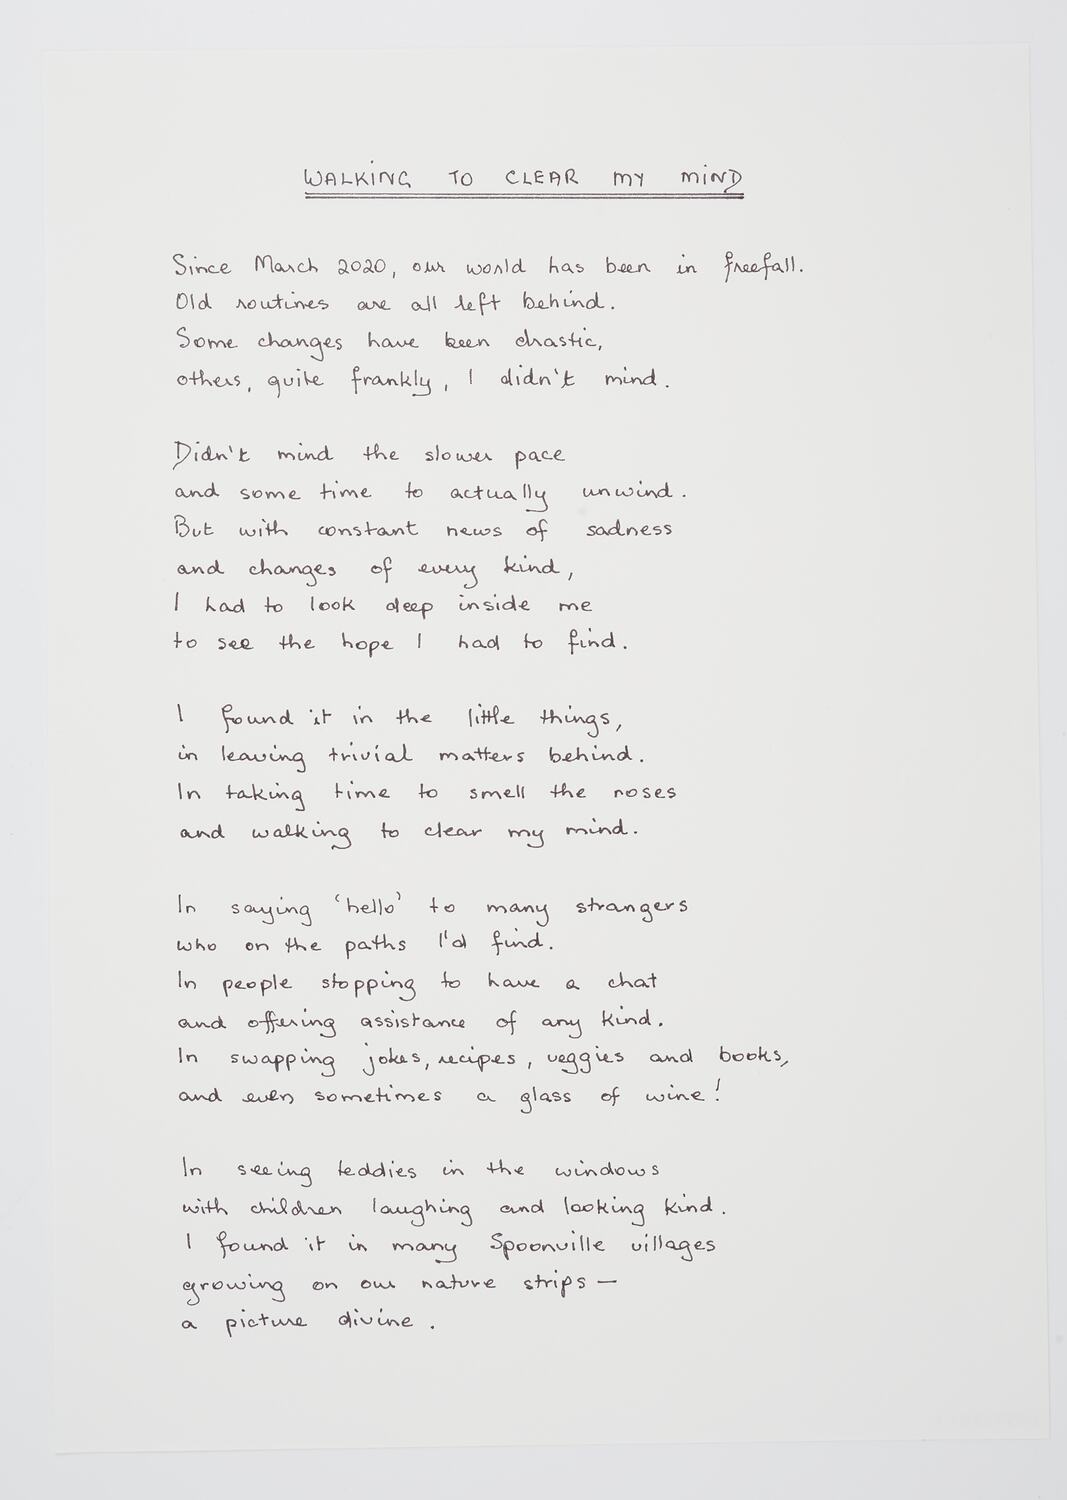 WALKING TO CLEAR MY MIND
Since March 2020, our world has been in freefall.
Old routines are all left behind.
Some changes have been drastic,
others, quite frankly, I didn't mind.
Didn't mind the slower pace
and some time to actually unwind.
But with constant news of sadness
and changes of every kind,
I had to look deep inside me
to see the hope I had to find.
I found it in the little things,
in leaving trivial matters behind.
In taking time to smell the roses
and walking to clear my mind.
In saying 'hello' to many strangers
who on the paths I'd find.
In people stopping to have a chat
and offering assistance of any kind.
In swapping jokes, recipes, veggies and books,
and even sometimes a glass of wine!
In seeing teddies in the windows
with children laughing and looking kind.
I found it in many Spoonville villages
growing on our nature strips —
a picture divine.